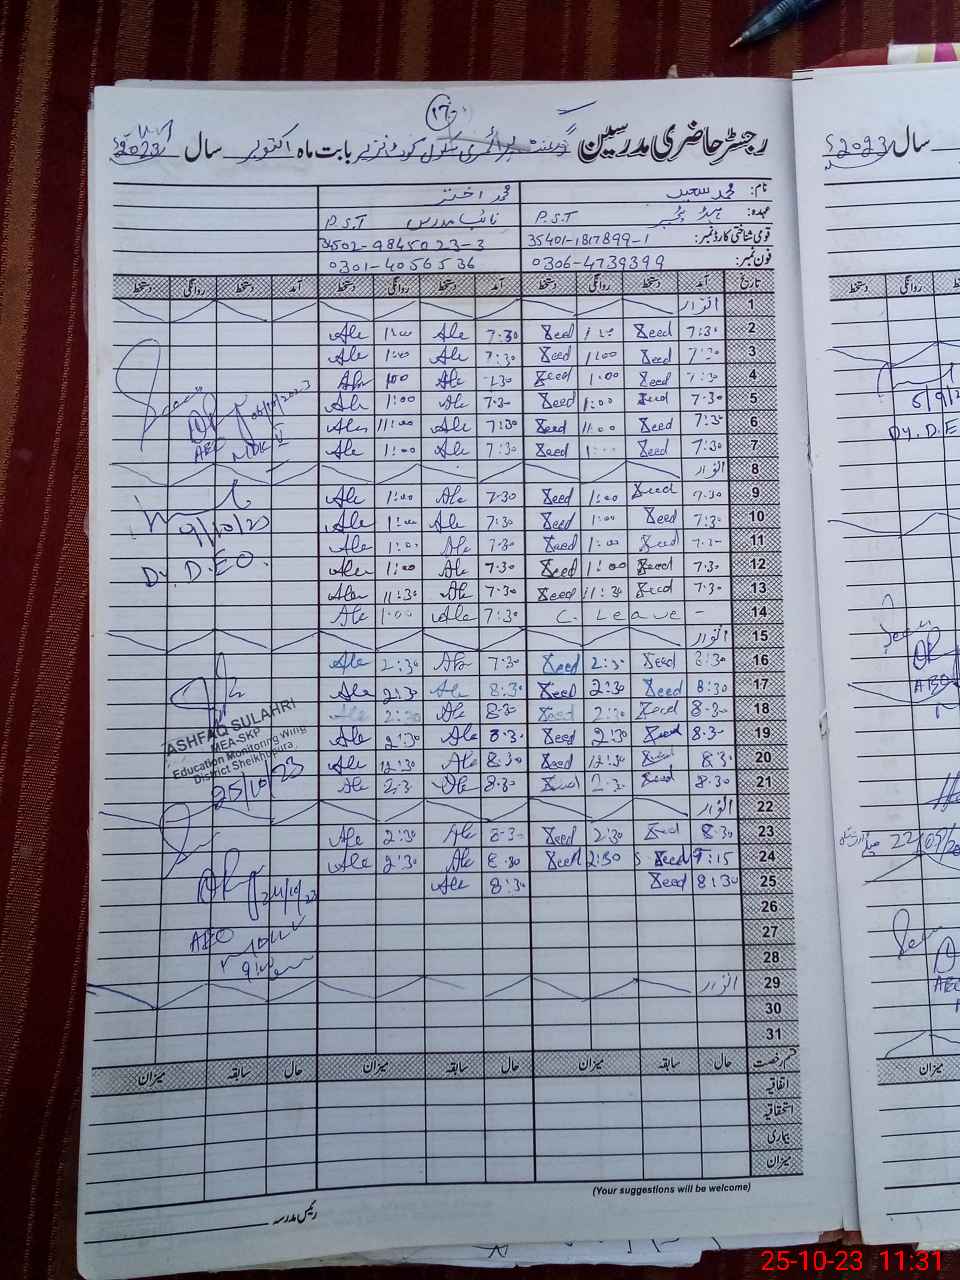 ۱۶
رجسٹر حاضری مدرسین گورنمنٹ پرائمری سکول کوٹ بابت ماہ اکتوبر سال 2023ء
نام: محمد سعید محمد اختر
عہدہ: ہیڈ ٹیچر P.S.T نائب مدرس P.S.T
قومی شناختی کارڈ نمبر: 35401-1817899-1 34502-9845023-3
فون نمبر: 0306-4739399 0301-4056536
تاریخ آمد دستخط روانگی دستخط آمد دستخط روانگی دستخط آمد دستخط روانگی دستخط
1 اتوار
2 7:30 Seed 1:00 Seed 7:30 Ale 11:00 Ale
3 7:30 Seed 1:00 Seed 7:30 Ale 1:00 Ale
4 7:30 Seed 1:00 Seed 7:30 Ale 1:00 Ale
5 7:30 Seed 1:00 Seed 7:30 Ale 1:00 Ale
6 7:30 Seed 11:00 Seed 7:30 Ale 11:00 Ale
7 7:30 Seed 1:00 Seed 7:30 Ale 1:00 Ale
8 اتوار
9 7:30 Seed 1:00 Seed 7:30 Ale 1:00 Ale
10 7:30 Seed 1:00 Seed 7:30 Ale 1:00 Ale
11 7:30 Seed 1:00 Seed 7:30 Ale 1:00 Ale
12 7:30 Seed 1:00 Seed 7:30 Ale 1:00 Ale
13 7:30 Seed 11:30 Seed 7:30 Ale 11:30 Ale
14 C. Leave - 7:30 Ale 1:00 Ale
15 اتوار
16 8:30 Seed 2:30 Seed 7:30 Ale 2:30 Ale
17 8:30 Seed 2:30 Seed 8:30 Ale 2:30 Ale
18 8:30 Seed 2:30 Seed 8:30 Ale 2:30 Ale
19 8:30 Seed 2:30 Seed 8:30 Ale 2:30 Ale
20 8:30 Seed 12:30 Seed 8:30 Ale 12:30 Ale
21 8:30 Seed 2:30 Seed 8:30 Ale 2:30 Ale
22 اتوار
23 8:30 Seed 2:30 Seed 8:30 Ale 2:30 Ale
24 9:15 Seed 2:30 Seed 8:30 Ale 2:30 Ale
25 8:30 Seed 8:30 Ale
26
27
28
29 اتوار
30
31
06/10/2023
AEO
9/10/23
Dy. D.EO.
ASHFAQ SULAHRI
MEA-SKP
Education Monitoring Wing
District Sheikhupura
25/10/23
24/10/23
AEO
قسم رخصت حال سابقہ میزان حال سابقہ میزان حال سابقہ میزان
اتفاقیہ
استحقاقیہ
بیماری
میزان
(Your suggestions will be welcome)
رئیس مدرسہ
سال 2023ء
دستخط روانگی
Dy. D.E
AEO
میزان
25-10-23 11:31